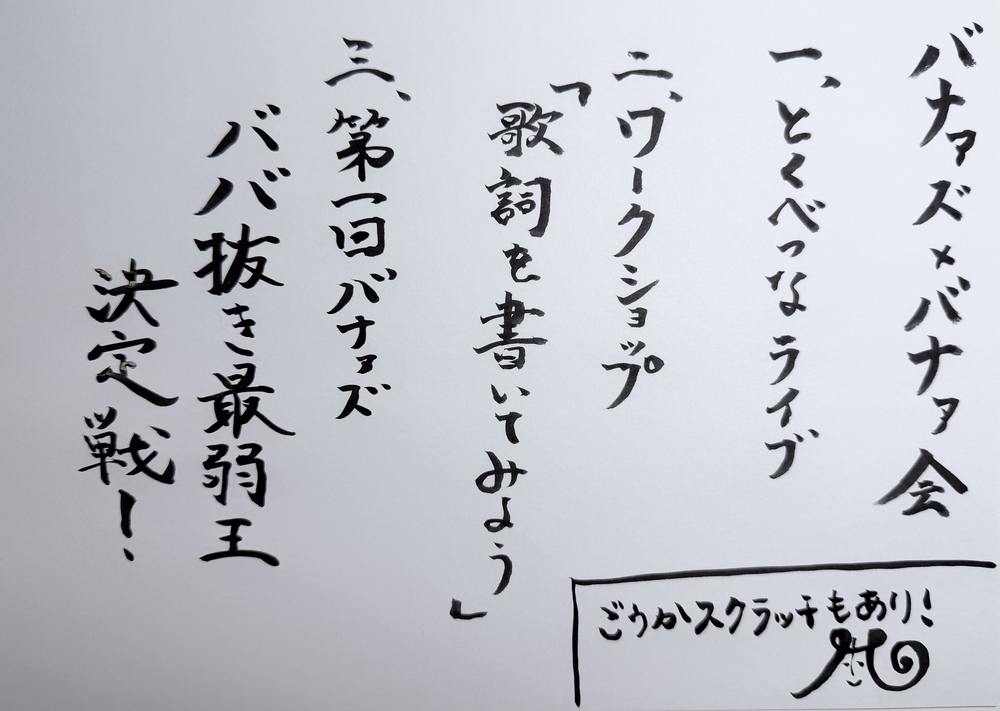 バナァズ×バナァ会
一、とくべつなライブ
二、ワークショップ
「歌詞を書いてみよう」
三、第一回バナァズ
ババ抜き最弱王
決定戦!
ごうかスクラッチもあり!